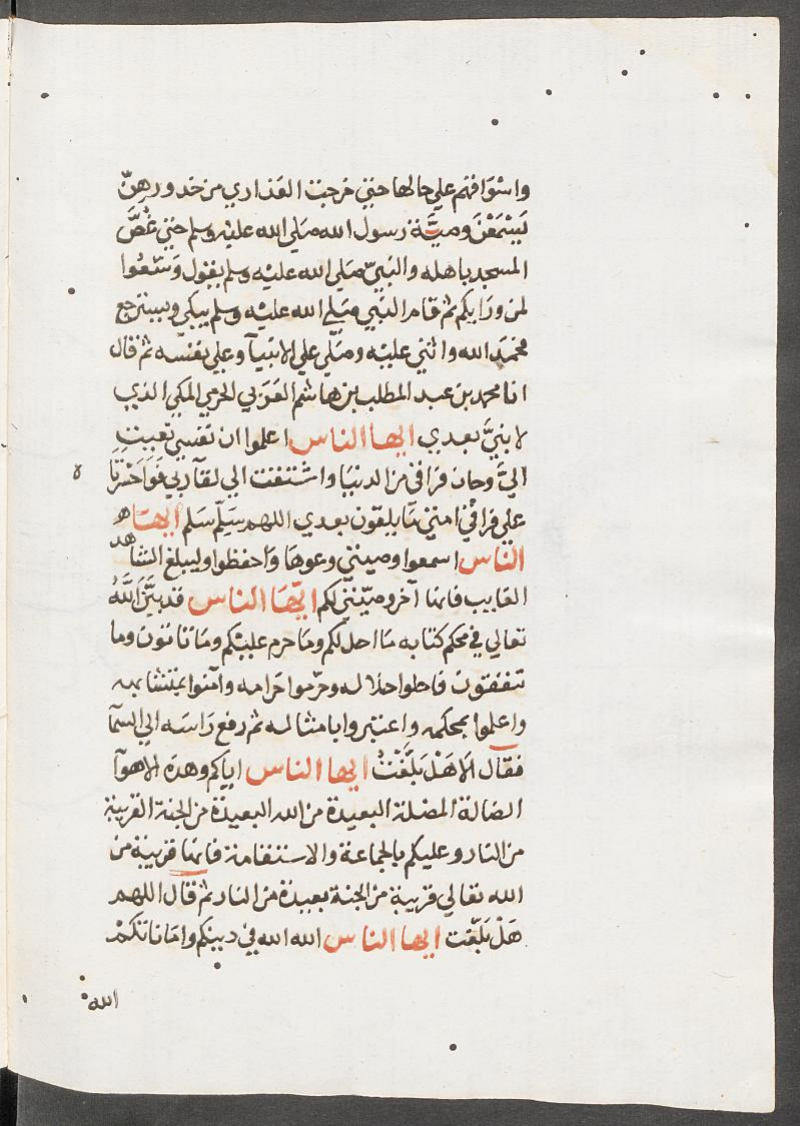 واسواقهم علي حالها حتي خرجت العذاري من خدورهنّ
ليسمعن وصيّة رسول الله صلي الله عليه وسلم حتي غصّ
المسجد باهله والنبيّ صلي الله عليه وسلم يقول وسّعوا
لمن ورايكم ثم قام النبي صلي الله عليه وسلم يبكي ويسترجع
فحمد الله واثني عليه وصلي علي الانبيآ وعلي نفسه ثم قال
انا محمد بن عبد المطلب بن هاشم العربي الحرمي المكي الذي
لا نبيّ بعدي ايها الناس اعلموا ان نفسي نعيت
اليّ وحان فراقي من الدنيا واشتقت الي لقآ ربي فوا حسرتا
علي فراقي امتي ما يلقون بعدي اللهم سلّم سلم ايها
الناس اسمعوا وصيتي وعوها واحفظوا وليبلغ الشاهد
الغايب فانها آخر وصيّتي لكم ايها الناس قد بيّن الله
تعالي في محكم كتابه ما احل لكم وما حرم عليكم وما تاتون وما
تتقون فاحلوا حلاله وحرّموا حرامه وآمنوا بمتشابهه
واعلموا بمحكمه واعتبروا بامثاله ثم رفع راسه الي السمآ
فقال الا هل بلّغت ايها الناس اياكم وهذه الاهوآ
الضالة المضلة البعيدة من الله البعيدة من الجنة القريبة
من النار وعليكم بالجماعة والاستقامة فانها قريبة من
الله تعالي قريبة من الجنة بعيدة من النار ثم قال اللهم
هل بلّغت ايها الناس الله الله في دينكم واماناتكم
الله